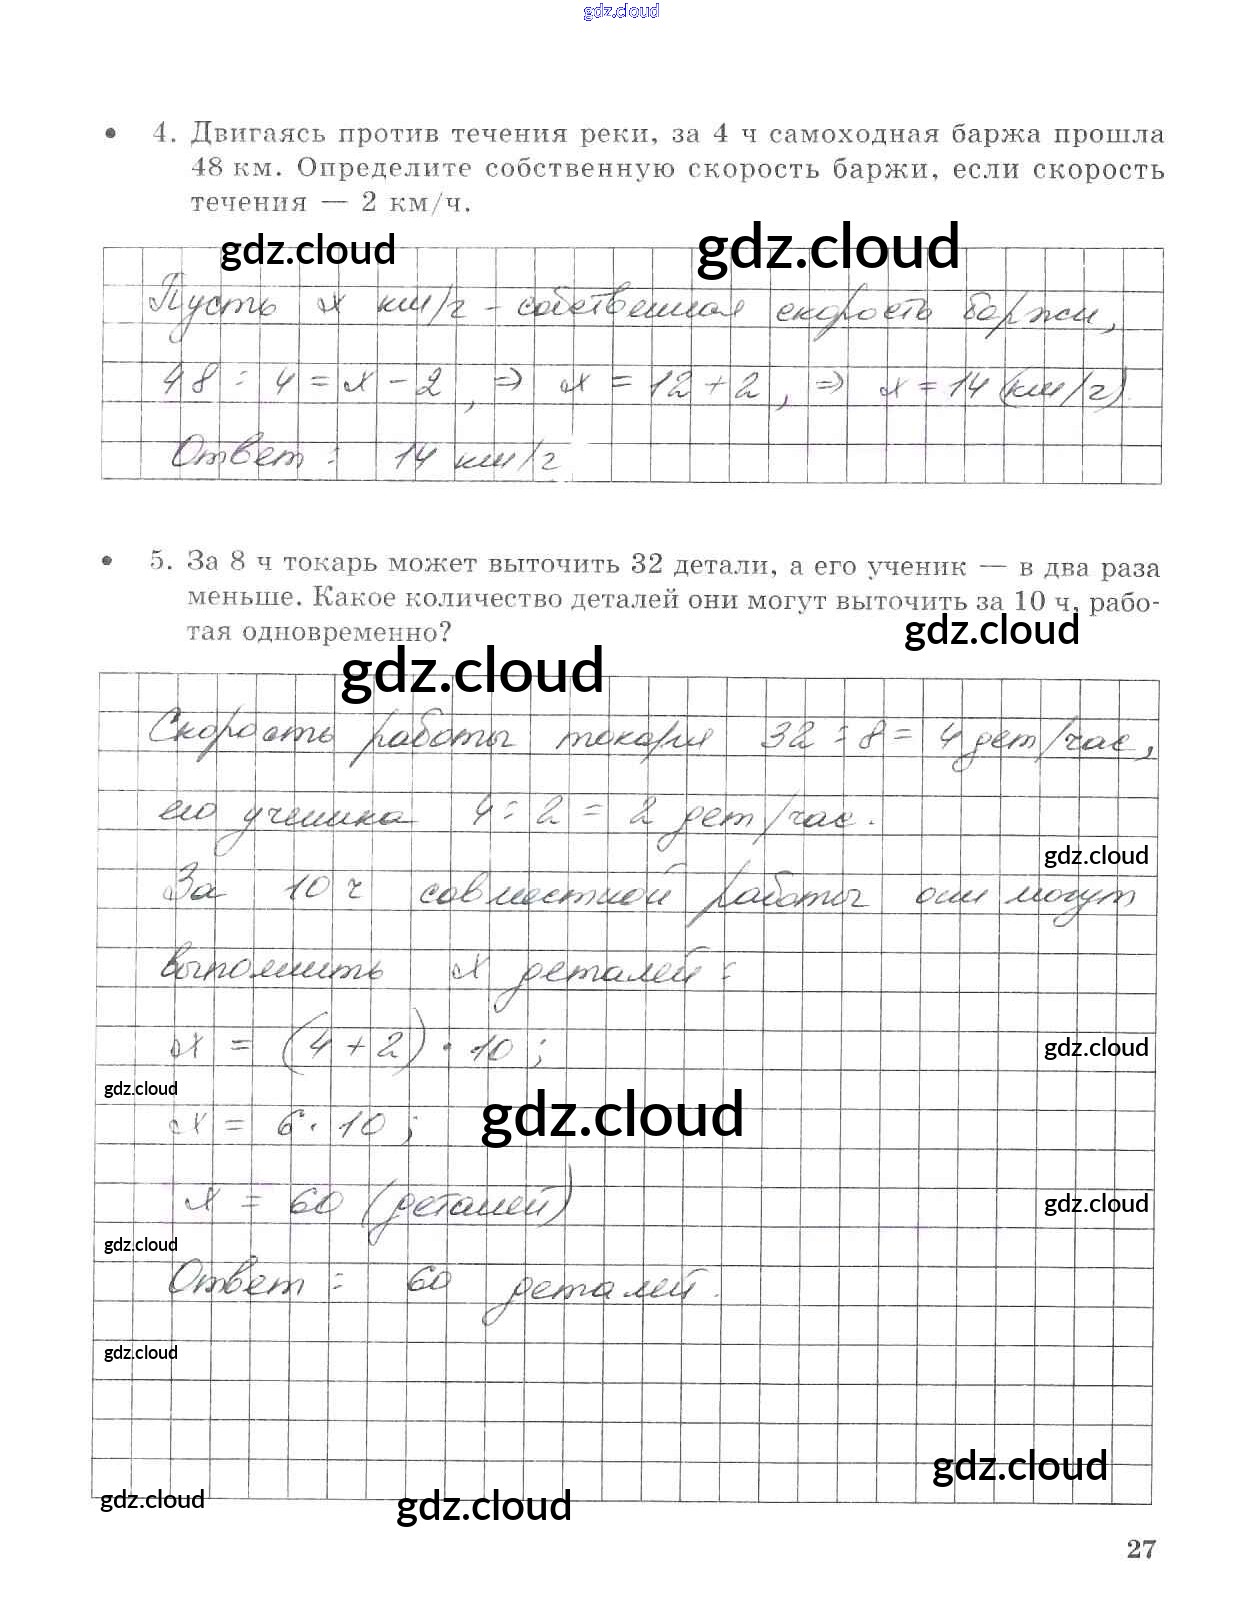 gdz.cloud
• 4. Двигаясь против течения реки, за 4 ч самоходная баржа прошла
48 км. Определите собственную скорость баржи, если скорость
течения — 2 км/ч.
gdz.cloud gdz.cloud
Пусть x км/ч - собственная скорость баржи,
48 : 4 = x - 2, ⇒ x = 12 + 2, ⇒ x = 14 (км/ч)
Ответ: 14 км/ч
• 5. За 8 ч токарь может выточить 32 детали, а его ученик — в два раза
меньше. Какое количество деталей они могут выточить за 10 ч, рабо-
тая одновременно?
gdz.cloud
gdz.cloud
Скорость работы токаря 32 : 8 = 4 дет/час,
его ученика 4 : 2 = 2 дет/час.
gdz.cloud
За 10 ч совместной работы они могут
выполнить x деталей:
x = (4 + 2) · 10;
gdz.cloud
gdz.cloud
gdz.cloud
x = 6 · 10;
x = 60 (деталей)
gdz.cloud
gdz.cloud
Ответ: 60 деталей.
gdz.cloud
gdz.cloud
gdz.cloud
gdz.cloud
27